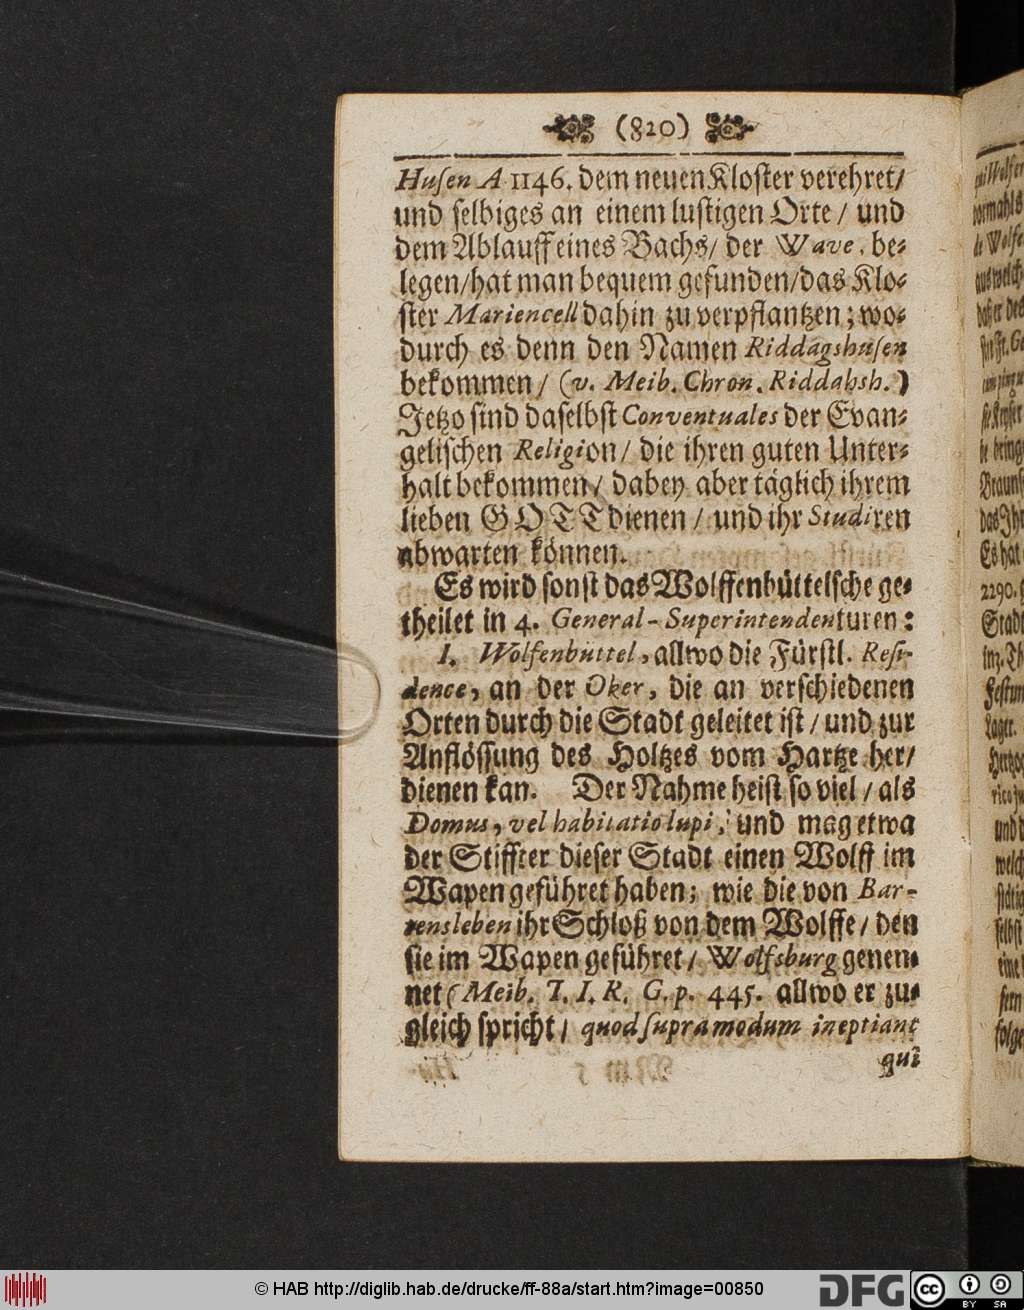 (820)
Husen A 1146. dem neuen Kloster verehret/
und selbiges an einem lustigen Orte / und
dem Ablauff eines Bachs/ der Wave, be-
legen/hat man bequem gefunden/das Klo-
ster Mariencell dahin zu verpflantzen; wo-
durch es denn den Namen Riddagshusen
bekommen/ (v. Meib. Chron. Riddahsh.)
Jetzo sind daselbst Conventuales der Evan-
gelischen Religion/ die ihren guten Unter-
halt bekommen/ dabey aber täglich ihrem
lieben GOTT dienen / und ihr Studiren
abwarten können.
Es wird sonst das Wolffenbüttelsche ge-
theilet in 4. General-Superintendenturen:
I. Wolfenbüttel, allwo die Fürstl. Resi-
dence, an der Oker, die an verschiedenen
Orten durch die Stadt geleitet ist / und zur
Anflössung des Holtzes vom Hartze her/
dienen kan. Der Nahme heist so viel / als
Domus, vel habitatio lupi, und mag etwa
der Stiffter dieser Stadt einen Wolff im
Wapen geführet haben; wie die von Bar-
tensleben ihr Schloß von dem Wolffe/ den
sie im Wapen geführet/ Wolfsburg genen-
net (Meib. T. I. R. G. p. 445. allwo er zu-
gleich spricht/ quod supra modum ineptiant
qui
© HAB http://diglib.hab.de/drucke/ff-88a/start.htm?image=00850
DFG
cc
BY SA